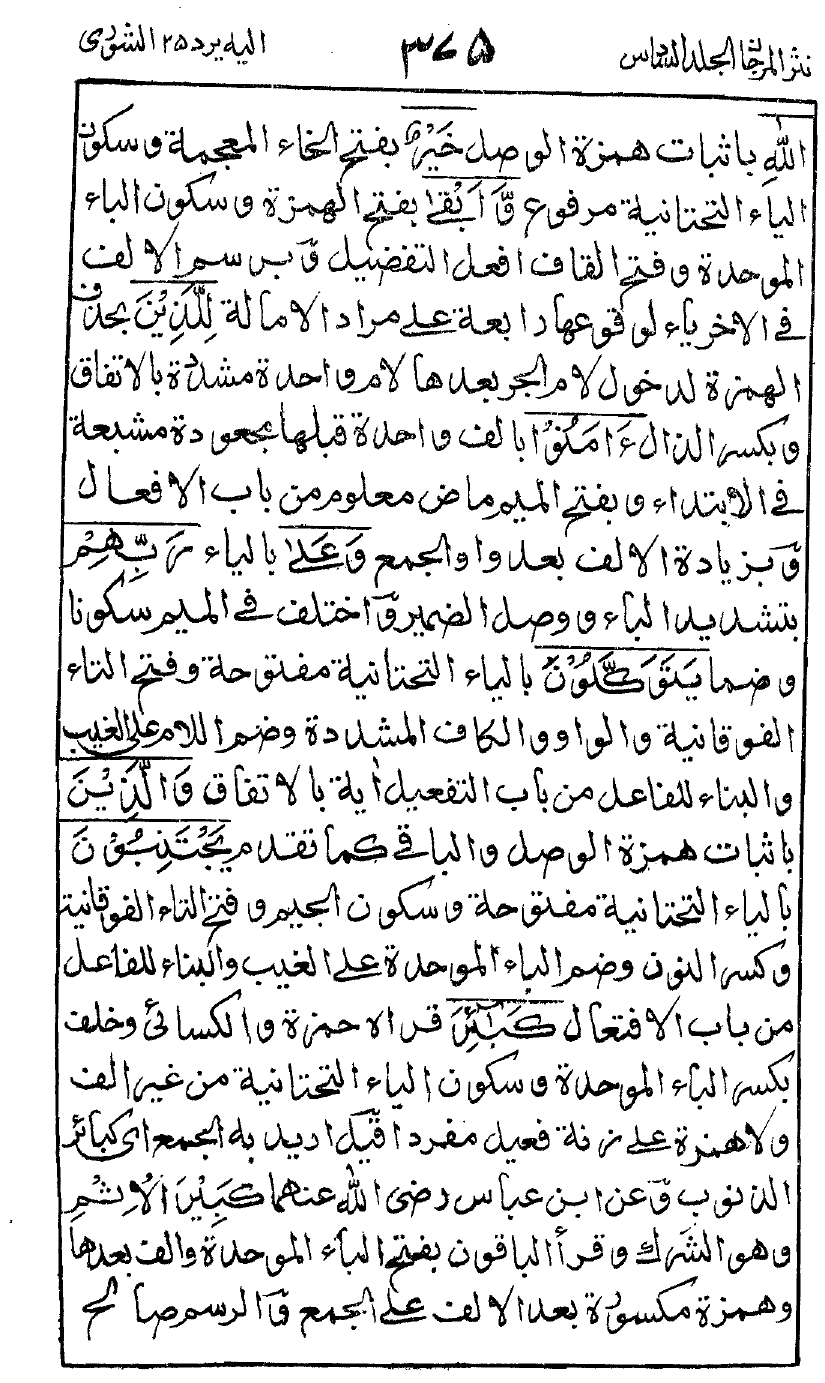 نثر المرجان الجلد السادس ٣٧٥ اليه يرد ٢٥ الشورى
اللهِ باثبات همزة الوصل خَيْرٌ بفتح الخاء المعجمة وسكون
الياء التحتانية مرفوع وَّاَبْقٰى بفتح الهمزة وسكون الباء
الموحدة وفتح القاف افعل التفضيل وبرسم الالف
في الاخر ياء لوقوعها رابعة على مراد الامالة لِلَّذِيْنَ بحذف
الهمزة لدخول لام الجر بعدها لام واحدة مشددة بالاتفاق
وبكسر الذال ءَامَنُوْا بالف واحدة قبلها مجعودة مشبعة
في الابتداء وبفتح الميم ماض معلوم من باب الافعال
وبزيادة الالف بعد واو الجمع وَعَلٰى بالياء رَبِّهِمْ
بتشديد الباء ووصل الضمير واختلف في الميم سكونا
وضما يَتَوَكَّلُوْنَ بالياء التحتانية مفتوحة وفتح التاء
الفوقانية والواو والكاف المشددة وضم اللام على الغيب
والبناء للفاعل من باب التفعيل اٰية بالاتفاق وَالَّذِيْنَ
باثبات همزة الوصل والباقي كما تقدم يَجْتَنِبُوْنَ
بالياء التحتانية مفتوحة وسكون الجيم وفتح التاء الفوقانية
وكسر النون وضم الباء الموحدة على الغيب والبناء للفاعل
من باب الافتعال كَبٰٓئِرَ قراه حمزة والكسائي وخلف
بكسر الباء الموحدة وسكون الياء التحتانية من غير الف
ولا همزة على زنة فعيل مفردا قيل اريد به الجمع اى كبائر
الذنوب وعن ابن عباس رضى الله عنهما كَبِيْرَ الْاِثْمِ
وهو الشرك وقرأ الباقون بفتح الباء الموحدة والف بعدها
وهمزة مكسورة بعد الالف على الجمع والرسم صالح